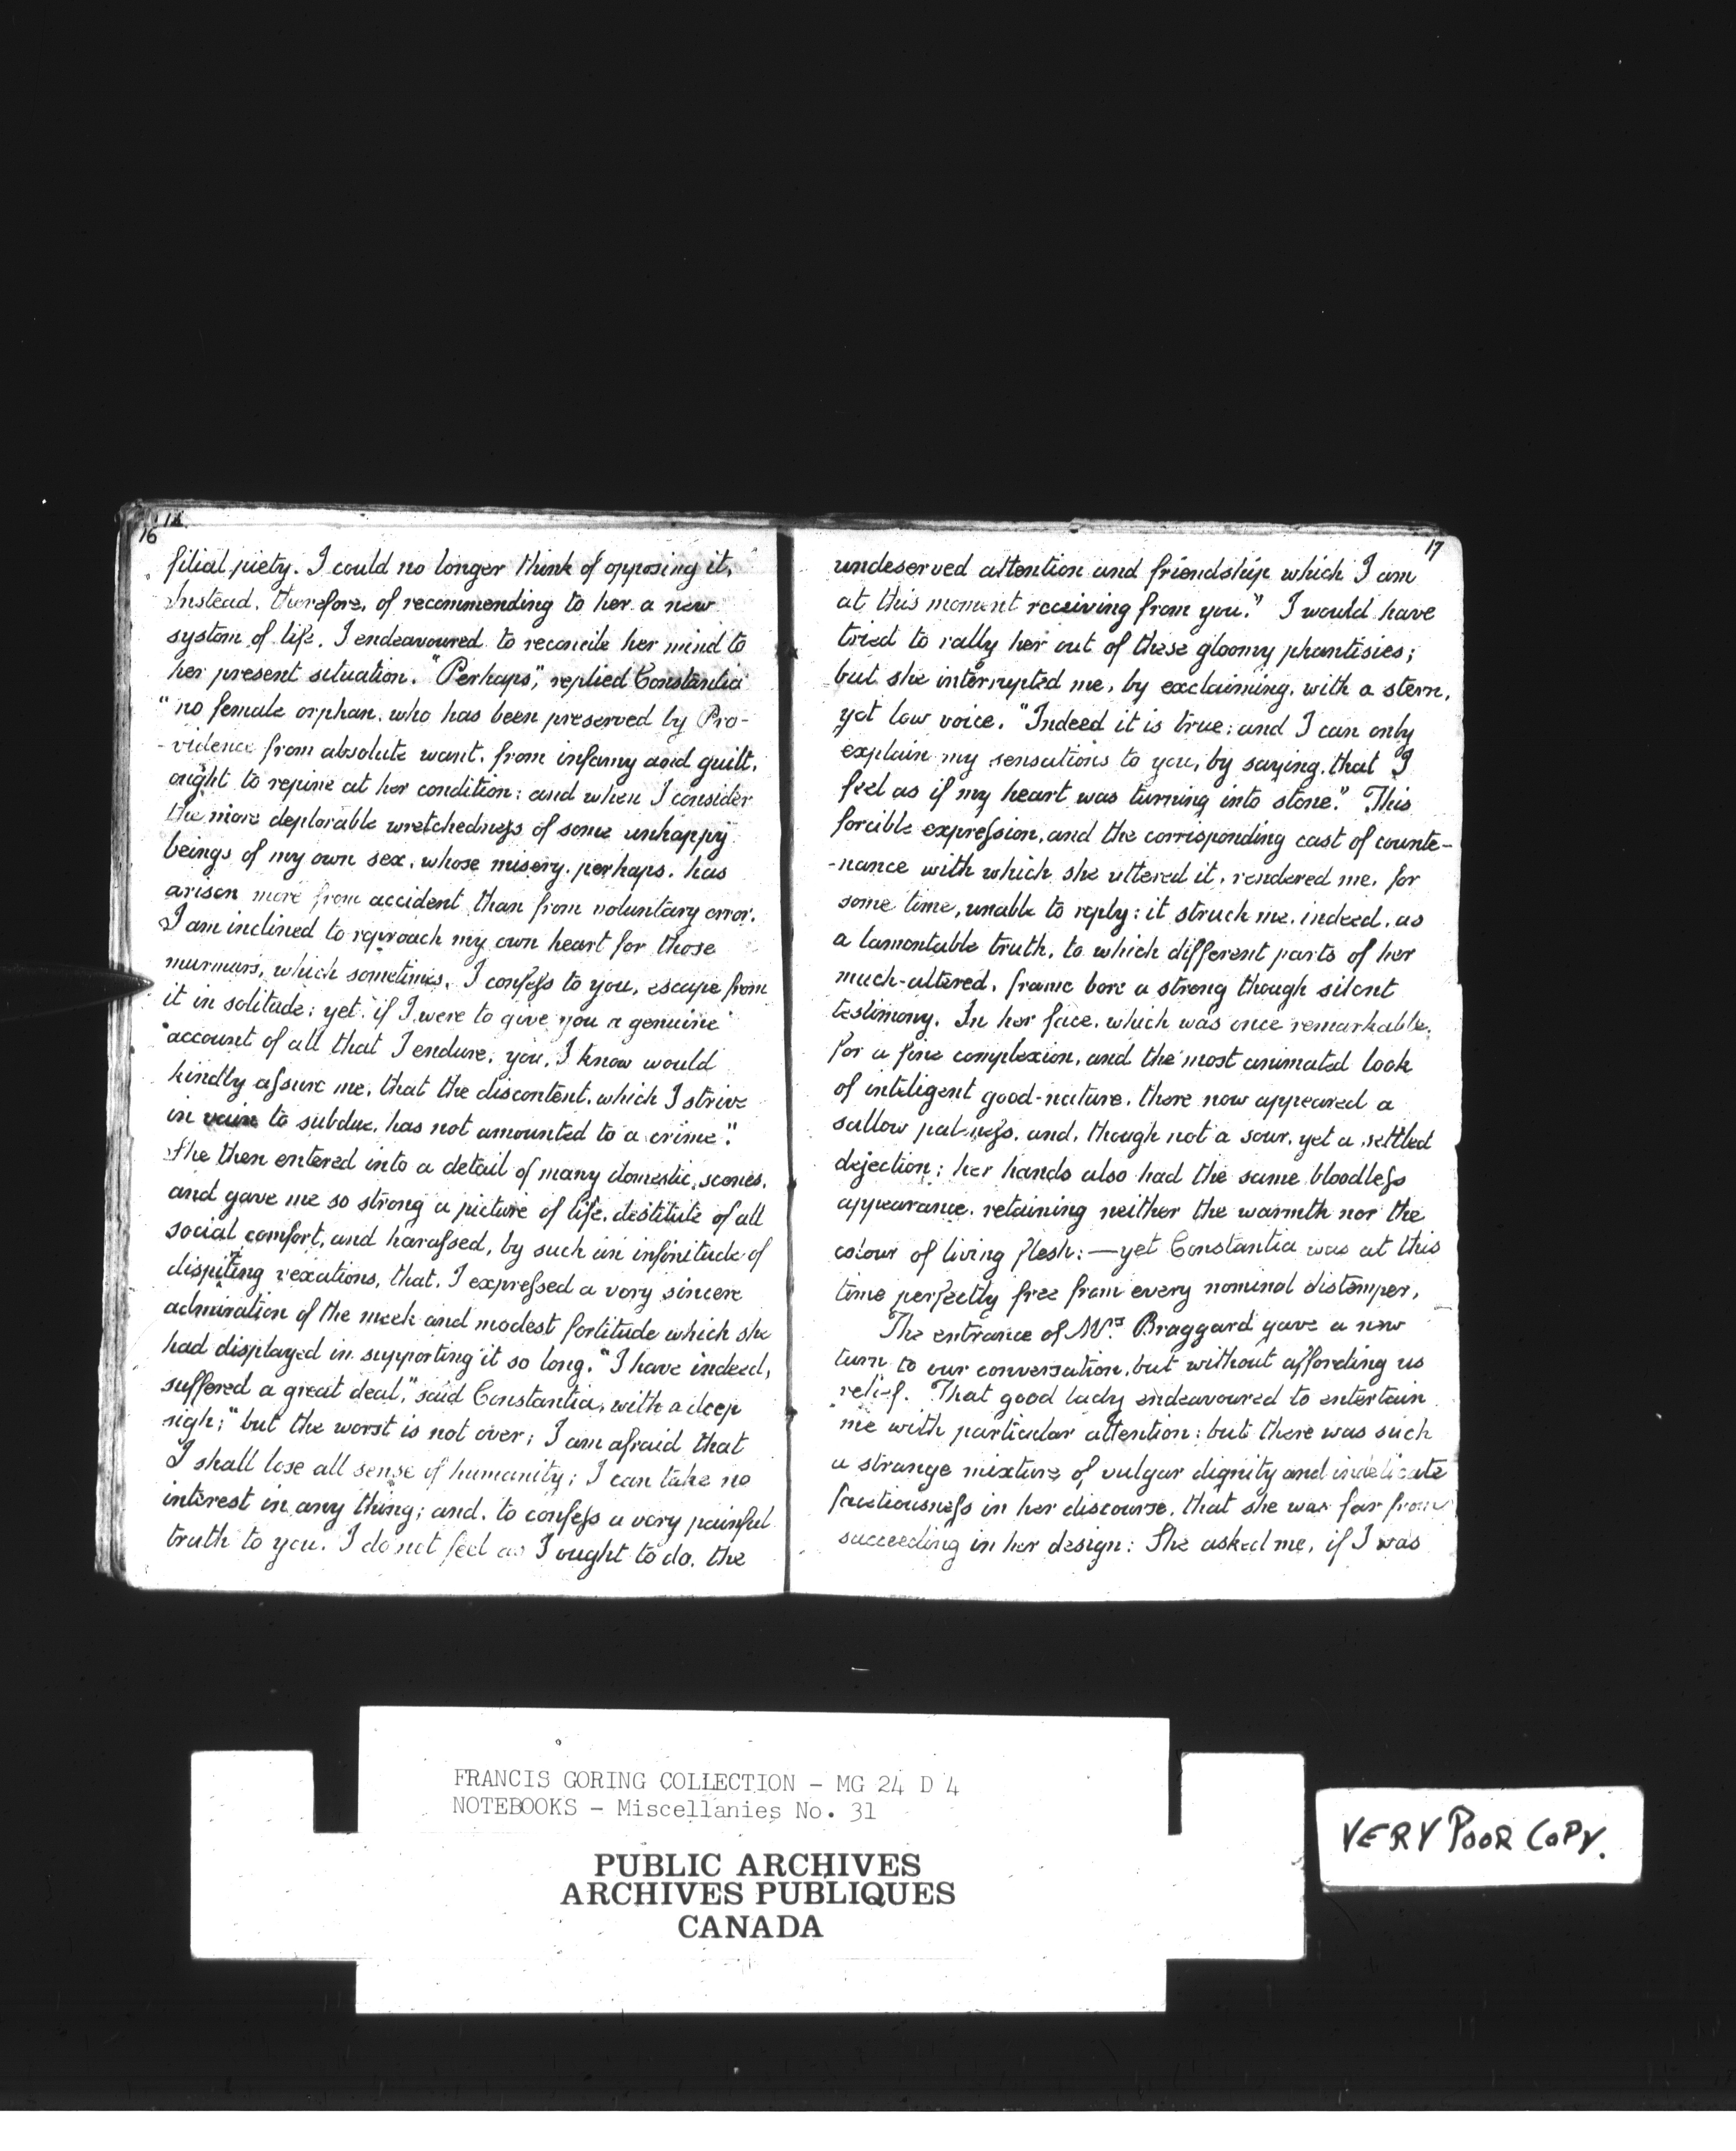 16
filial piety. I could no longer think of opposing it.
Instead, therefore, of recommending to her a new
system of life, I endeavoured to reconcile her mind to
her present situation. "Perhaps," replied Constantia
"no female orphan, who has been preserved by Pro-
-vidence from absolute want, from infamy and guilt,
ought to repine at her condition: and when I consider
the more deplorable wretchedneſs of some unhappy
beings of my own sex, whose misery, perhaps, has
arisen more from accident than from voluntary error,
I am inclined to reproach my own heart for those
murmurs, which sometimes, I confeſs to you, escape from
it in solitude: yet, if I were to give you a genuine
account of all that I endure, you, I know would
kindly aſsure me, that the discontent, which I strive
in vain to subdue, has not amounted to a crime."
She then entered into a detail of many domestic scenes,
and gave me so strong a picture of life, destitute of all
social comfort, and haraſsed, by such an infinitude of
dispiting vexations, that, I expreſsed a very sincere
admiration of the meek and modest fortitude which she
had displayed in supporting it so long. "I have indeed,
suffered a great deal," said Constantia, with a deep
sigh; "but the worst is not over; I am afraid that
I shall lose all sense of humanity; I can take no
interest in any thing; and, to confeſs a very painful
truth to you, I do not feel as I ought to do, the
17
undeserved attention and friendship which I am
at this moment receiving from you." I would have
tried to rally her out of these gloomy phantisies;
but she interrupted me, by exclaiming, with a stern,
yet low voice, "Indeed it is true; and I can only
explain my sensations to you, by saying, that I
feel as if my heart was turning into stone." This
forcible expreſsion, and the corrisponding cast of counte-
-nance with which she uttered it, rendered me, for
some time, unable to reply: it struck me, indeed, as
a lamentable truth, to which different parts of her
much-altered, frame bore a strong though silent
testimony. In her face, which was once remarkable,
for a fine complexion, and the most animated look
of inteligent good-nature, there now appeared a
sallow paleneſs, and, though not a sour, yet a settled
dejection; her hands also had the same bloodleſs
appearance, retaining neither the warmth nor the
colour of living flesh:—yet Constantia was at this
time perfectly free from every nominal distemper,
The entrance of Mrs. Braggard gave a new
turn to our conversation, but without affording us
relief. That good lady endeavoured to entertain
me with particular attention: but there was such
a strange mixture of vulgar dignity and indelicate
factiousneſs in her discourse, that she was far from
succeeding in her design: She asked me, if I was
FRANCIS GORING COLLECTION - MG 24 D 4
NOTEBOOKS - Miscellanies No. 31
PUBLIC ARCHIVES
ARCHIVES PUBLIQUES
CANADA
VERY POOR COPY.